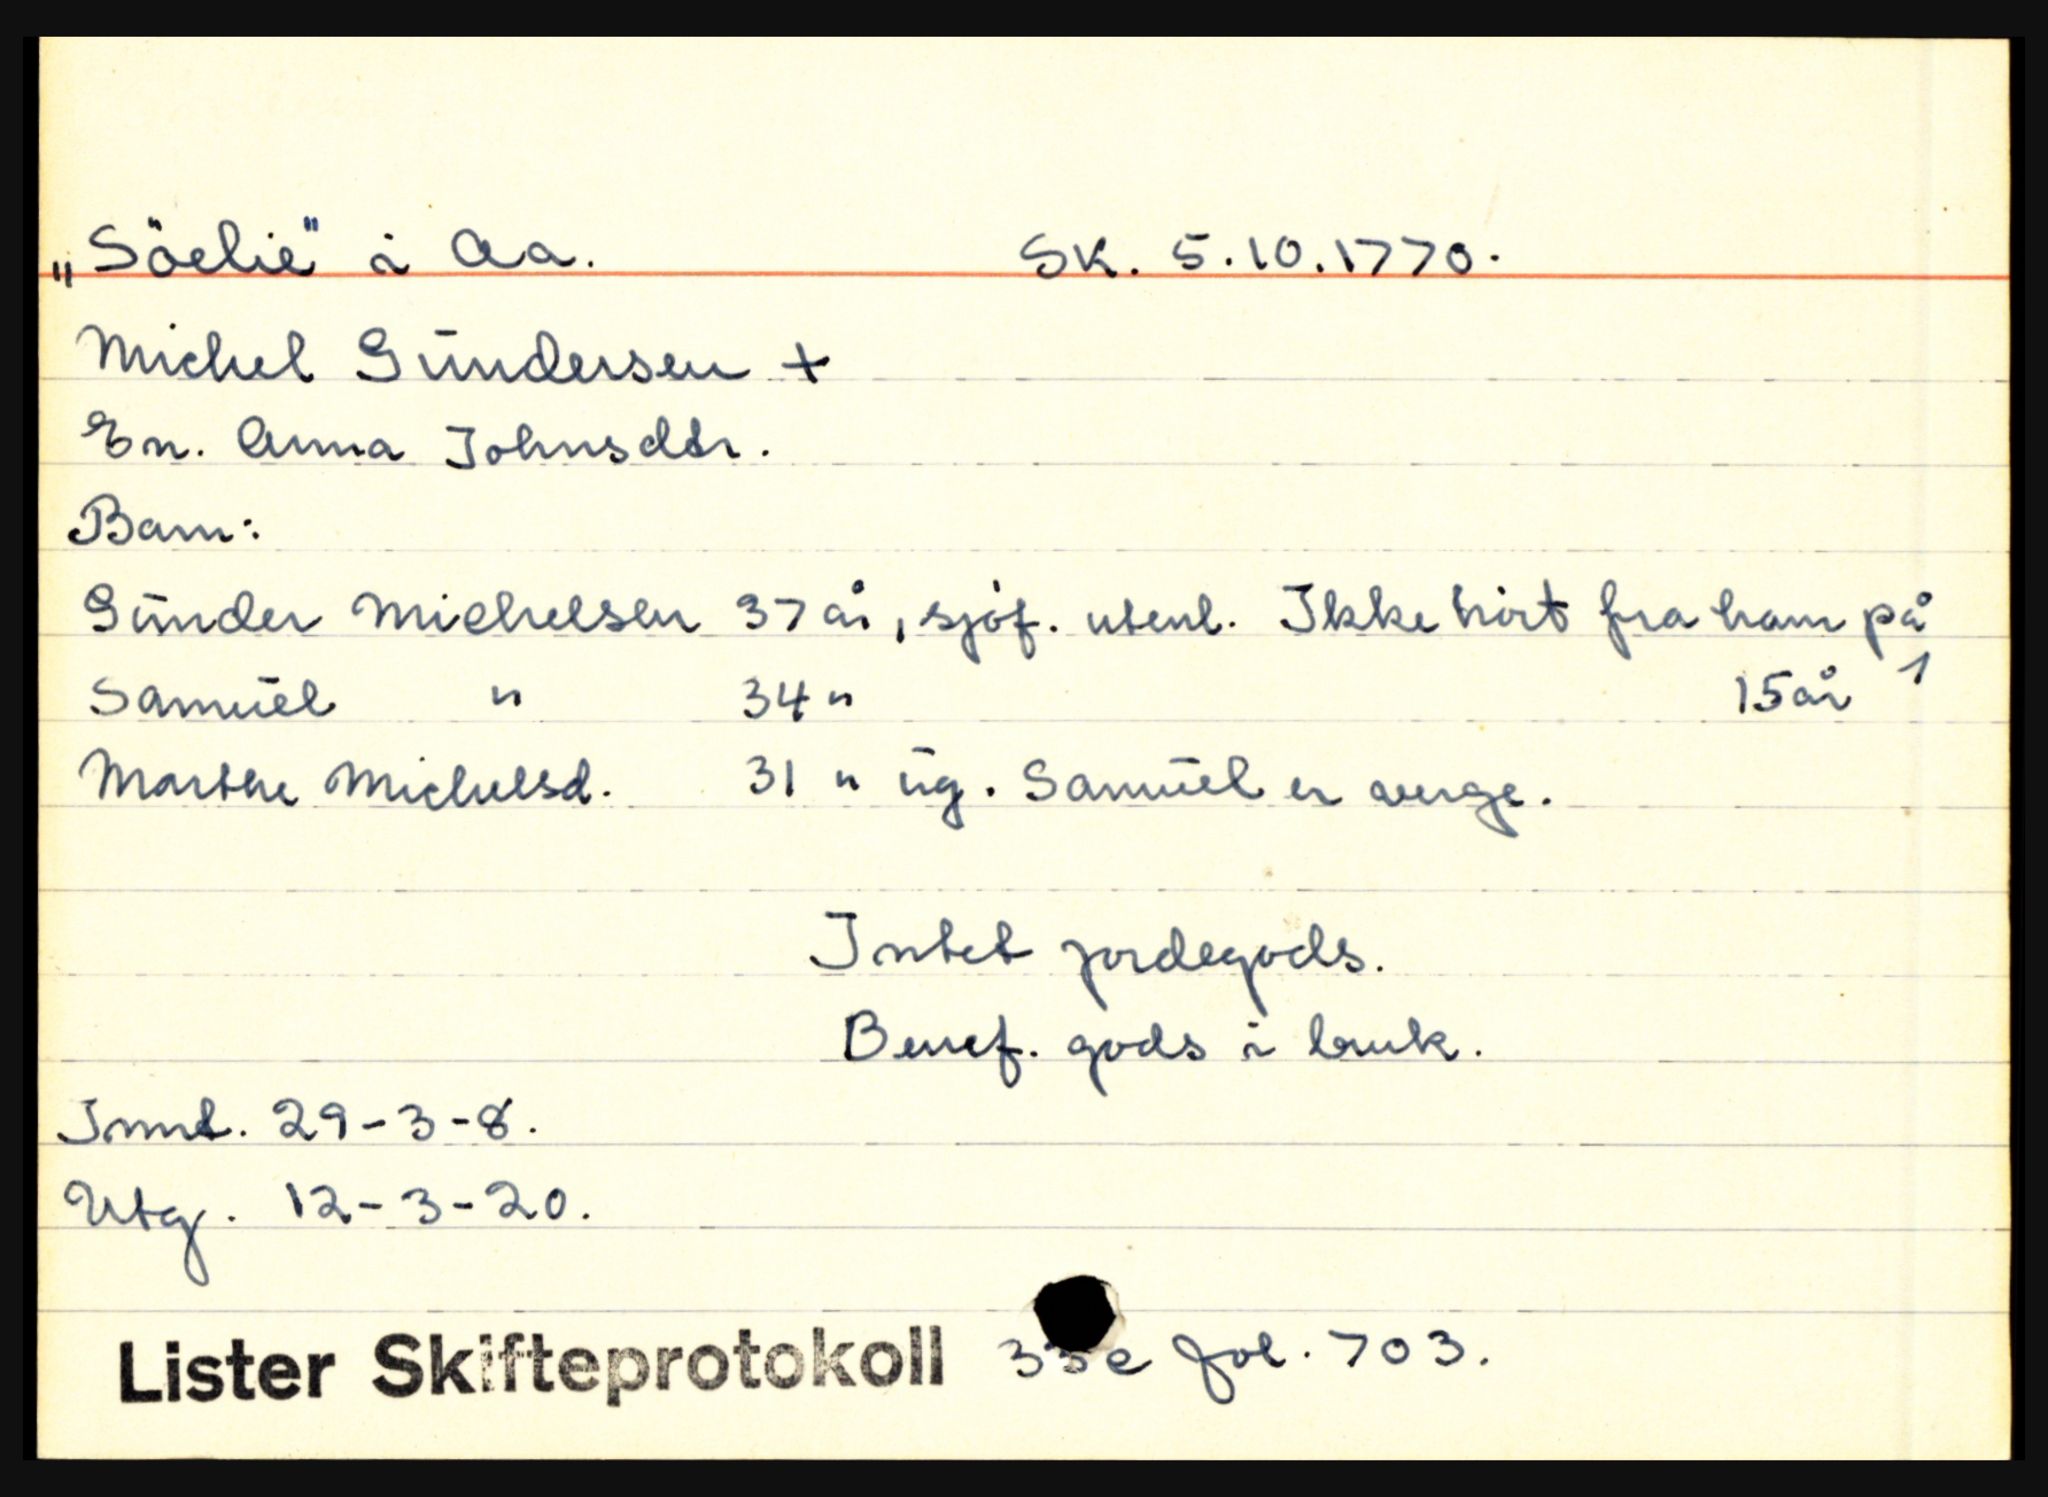 „Söelie" i Aa. Sk. 5.10.1770.
Michel Gündersen +
En. Anna Johnsdtr.
Barn:
Günder Michelsen 37 år, sjøf. utenl. Ikke hørt fra ham på
Samüel " 34 " 15 år
Marthe Michelsd. 31 " üg. Samüel er verge.
Intet jordegods.
Benef. gods i bruk.
Innt. 29-3-8.
Utg. 12-3-20.
Lister Skifteprotokoll fol. 703.